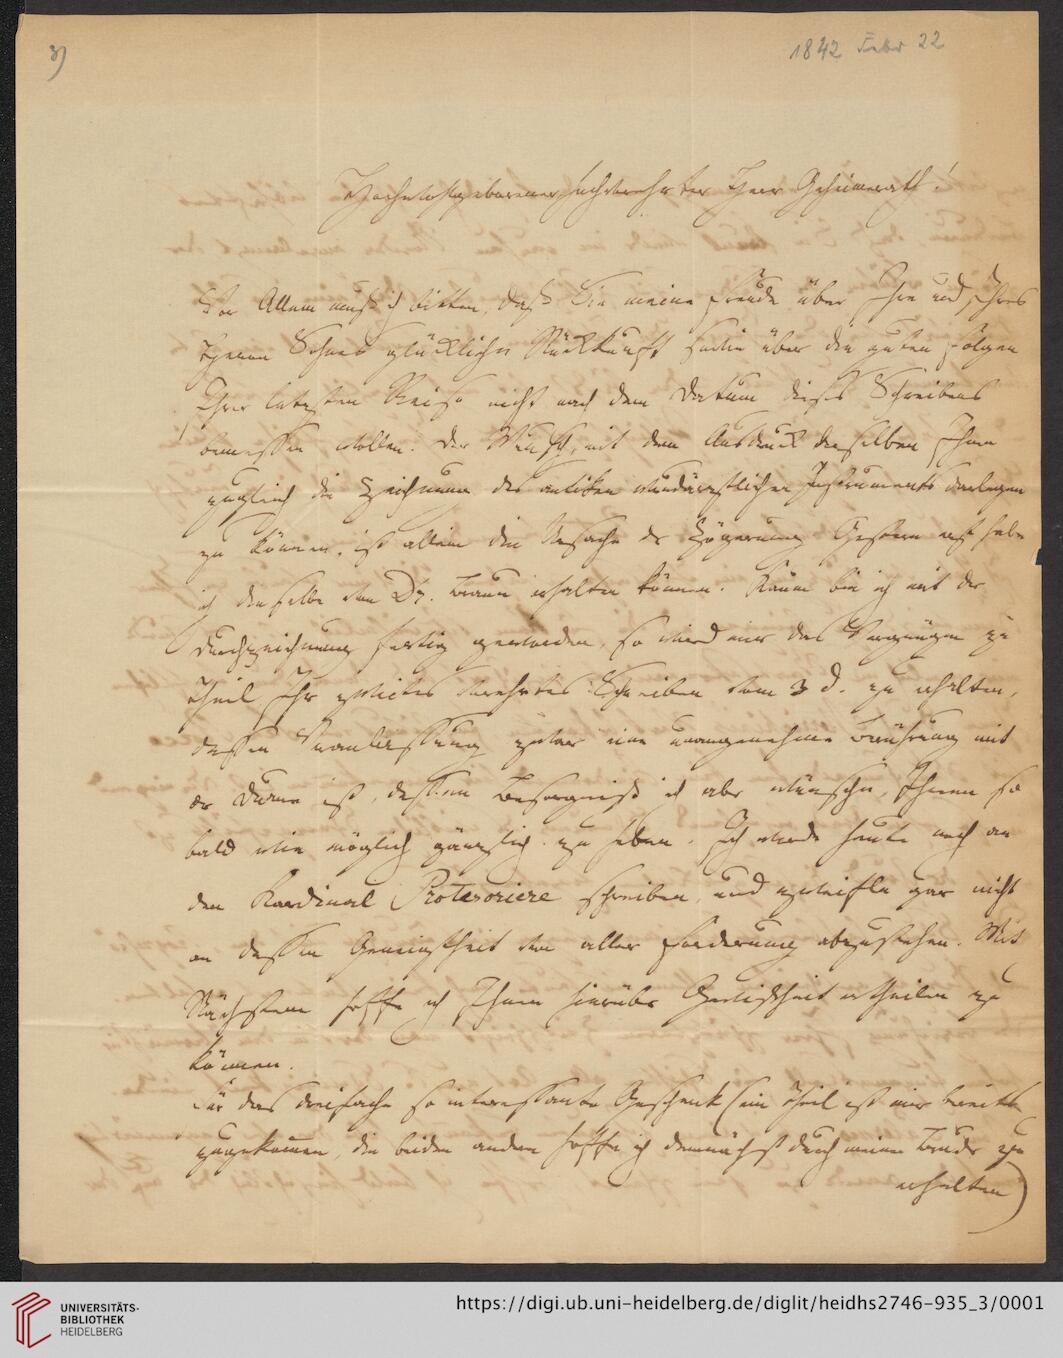 3)
1842 Febr 22
Hochwohlgeborener hochverehrter Herr Geheimerath!
Vor Allem muß ich bitten, daß Sie meine Freude über Ihre und Ihres
Herrn Sohnes glückliche Rückkunft sowie über die guten Folgen
Ihrer letzten Reise nicht nach dem Datum dieses Schreibens
bemessen wollen. Der Wunsch, mit dem Ausdruck derselben Ihnen
zugleich die Zeichnung des antiken wundärztlichen Instruments vorlegen
zu können, ist allein die Ursache der Zögerung. Gestern erst habe
ich dieselbe von Dr. Braun erhalten können. Kaum bin ich mit der
Durchzeichnung fertig geworden, so wird mir das Vergnügen zu
Theil Ihr zweites verehrtes Schreiben vom 3 d. zu erhalten,
dessen Veranlassung zwar eine unangenehme Berührung mit
der ist, dessen Besorgniß ich aber wünsche, Ihnen so
bald wie möglich gänzlich zu heben. Ich werde heute noch an
den Kardinal Protesoriere schreiben, und zweifle gar nicht
an dessen Geneigtheit von aller Forderung abzustehen. Mit
Nächstem hoffe ich Ihnen hierüber Gewißheit ertheilen zu
können.
Für das dreifache so interessante Geschenk (ein Theil ist mir bereits
zugekommen, die beiden andern hoffe ich demnächst durch meinen Bruder zu
erhalten)
UNIVERSITÄTS-
BIBLIOTHEK
HEIDELBERG
https://digi.ub.uni-heidelberg.de/diglit/heidhs2746-935_3/0001